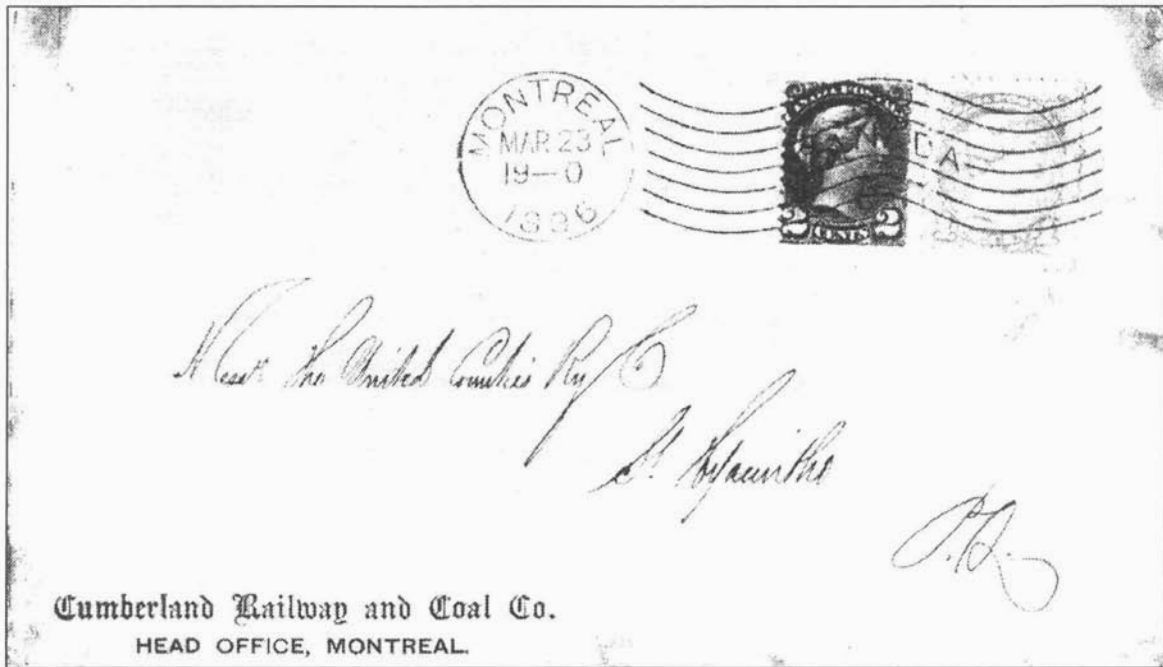 MONTREAL
MAR 23
19—0
1896
CANADA
2 CENTS 2
Messrs The United Counties Ry Co
St Hyacinthe
P.Q.
Cumberland Railway and Coal Co.
HEAD OFFICE, MONTREAL.